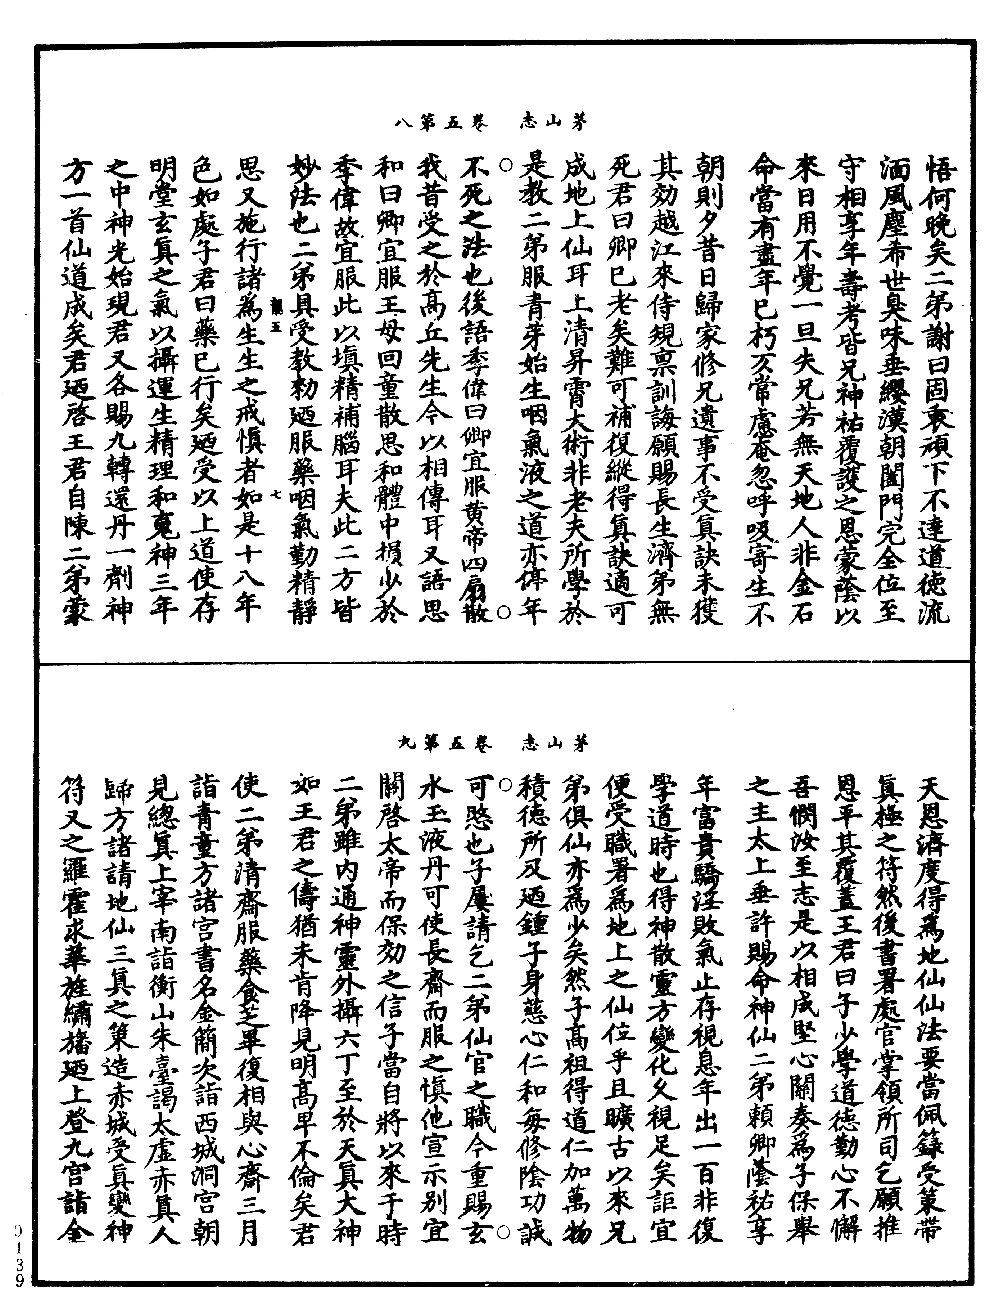 茅山志　卷五第八
悟何晚矣二弟謝曰固衰頑下不達道德流
湎風塵希世臭味垂纓漢朝闔門完全位至
守相享年壽考皆兄神祐覆護之恩蒙蔭以
來日用不覺一旦失兄若無天地人非金石
命當有盡年已朽久常慮奄忽呼吸寄生不
朝則夕昔日歸家修兄遺事不受真訣未獲
其効越江來侍規稟訓誨願賜長生濟弟無
死君曰卿已老矣難可補復縱得真訣適可
成地上仙耳上清昇霄大術非老夫所學於
是教二弟服青芽始生咽氣液之道亦停年
不死之法也後語季偉曰卿宜服黄帝四扇散
我昔受之於高丘先生今以相傳耳又語思
和曰卿宜服王母回童散思和體中損少於
季偉故宜服此以填精補腦耳夫此二方皆
妙法也二弟具受教勑廼服藥咽氣勤精靜
思又施行諸為生生之戒慎者如是十八年
色如處子君曰藥已行矣廼受以上道使存
明堂玄真之氣以攝運生精理和魂神三年
之中神光始現君又各賜九轉還丹一劑神
方一首仙道成矣君廼啓王君自陳二弟蒙
茅山志　卷五第九
天恩濟度得為地仙仙法要當佩籙受策帶
真極之符然後書署處官掌領所司乞願推
恩平其覆蓋王君曰子少學道德勤心不懈
吾憫汝至志是以相成堅心關奏為子保舉
之主太上垂許賜命神仙二弟頼卿蔭祐享
年富貴驕淫敗氣止存視息年出一百非復
學道時也得神散靈方變化久視足矣詎宜
便受職署為地上之仙位乎且曠古以來兄
弟俱仙亦為少矣然子高祖得道仁加萬物
積德所及廼鍾子身慈心仁和每修陰功誠
可愍也子屢請乞二弟仙官之職今重賜玄
水玉液丹可使長齋而服之慎他宣示別宜
關啓太帝而保効之信子當自將以來于時
二弟雖内通神靈外攝六丁至於天真大神
如王君之儔猶未肯降見明高卑不倫矣君
使二弟清齋服藥食芝畢復相與心齋三月
詣青童方諸宮書名金簡次詣西城洞宮朝
見總真上宰南詣衡山朱臺謁太虛赤真人
歸方諸請地仙三真之策造赤城受真變神
符又之羅霍求華旌繡旛廼上登九宫詣金
0139